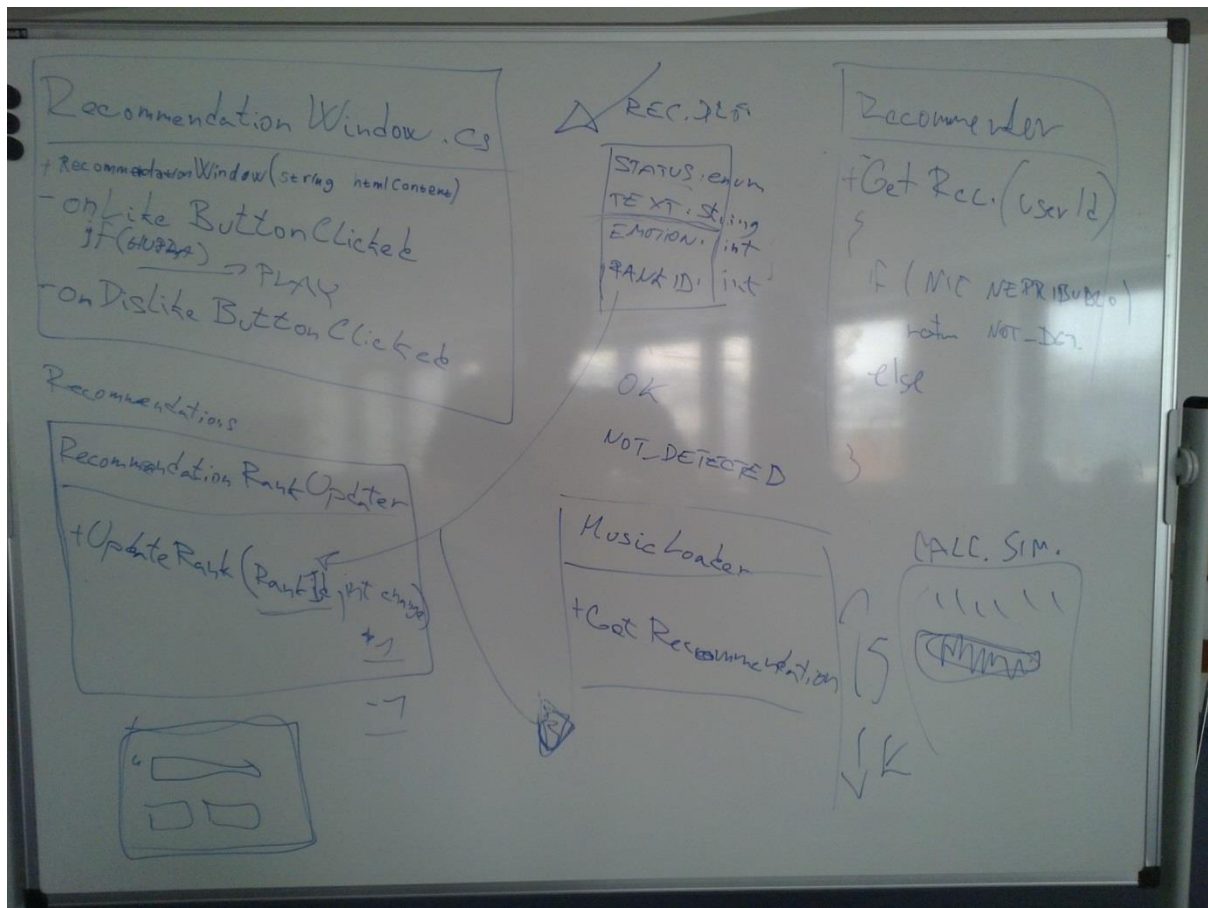 Recommendation Window.cs
+ RecommendationWindow(string htmlContent)
- onLike ButtonClicked
if(HUDBA)
PLAY
- onDislike ButtonClicked
Recommendations
Recommendation RankUpdater
+UpdateRank(RankId, int change)
+1
-1
REC.
STATUS: enum
TEXT: string
EMOTION: int
RANK ID: int
OK
NOT_DETECTED
MusicLoader
+Get Recommendation
Recommender
+Get Rec.(userId)
{
if (NIC NEPRIBUDLO)
return NOT_DET.
else
}
CALC. SIM.
15